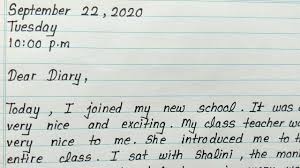 September 22, 2020
Tuesday
10:00 p.m
Dear Diary,
Today, I joined my new school. It was
very nice and exciting. My class teacher wa
very nice to me. She introduced me to t
entire class. I sat with Shalini, the mo